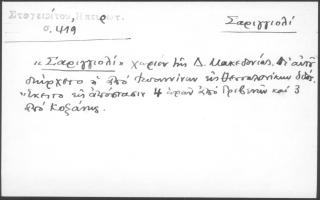 Στογειρίτου, Ηπειρωτ.
σ. 419
Σαριγγιολί
"Σαριγγιολί" χωρίον της Δ. Μακεδονίας. Δι' αυτού
διήρχετο η από Ιωαννίνων εις Θεσσαλονίκην οδός.
Έκειτο εις απόστασιν 4 ωρών από Γρεβενών και 3
από Κοζάνης.